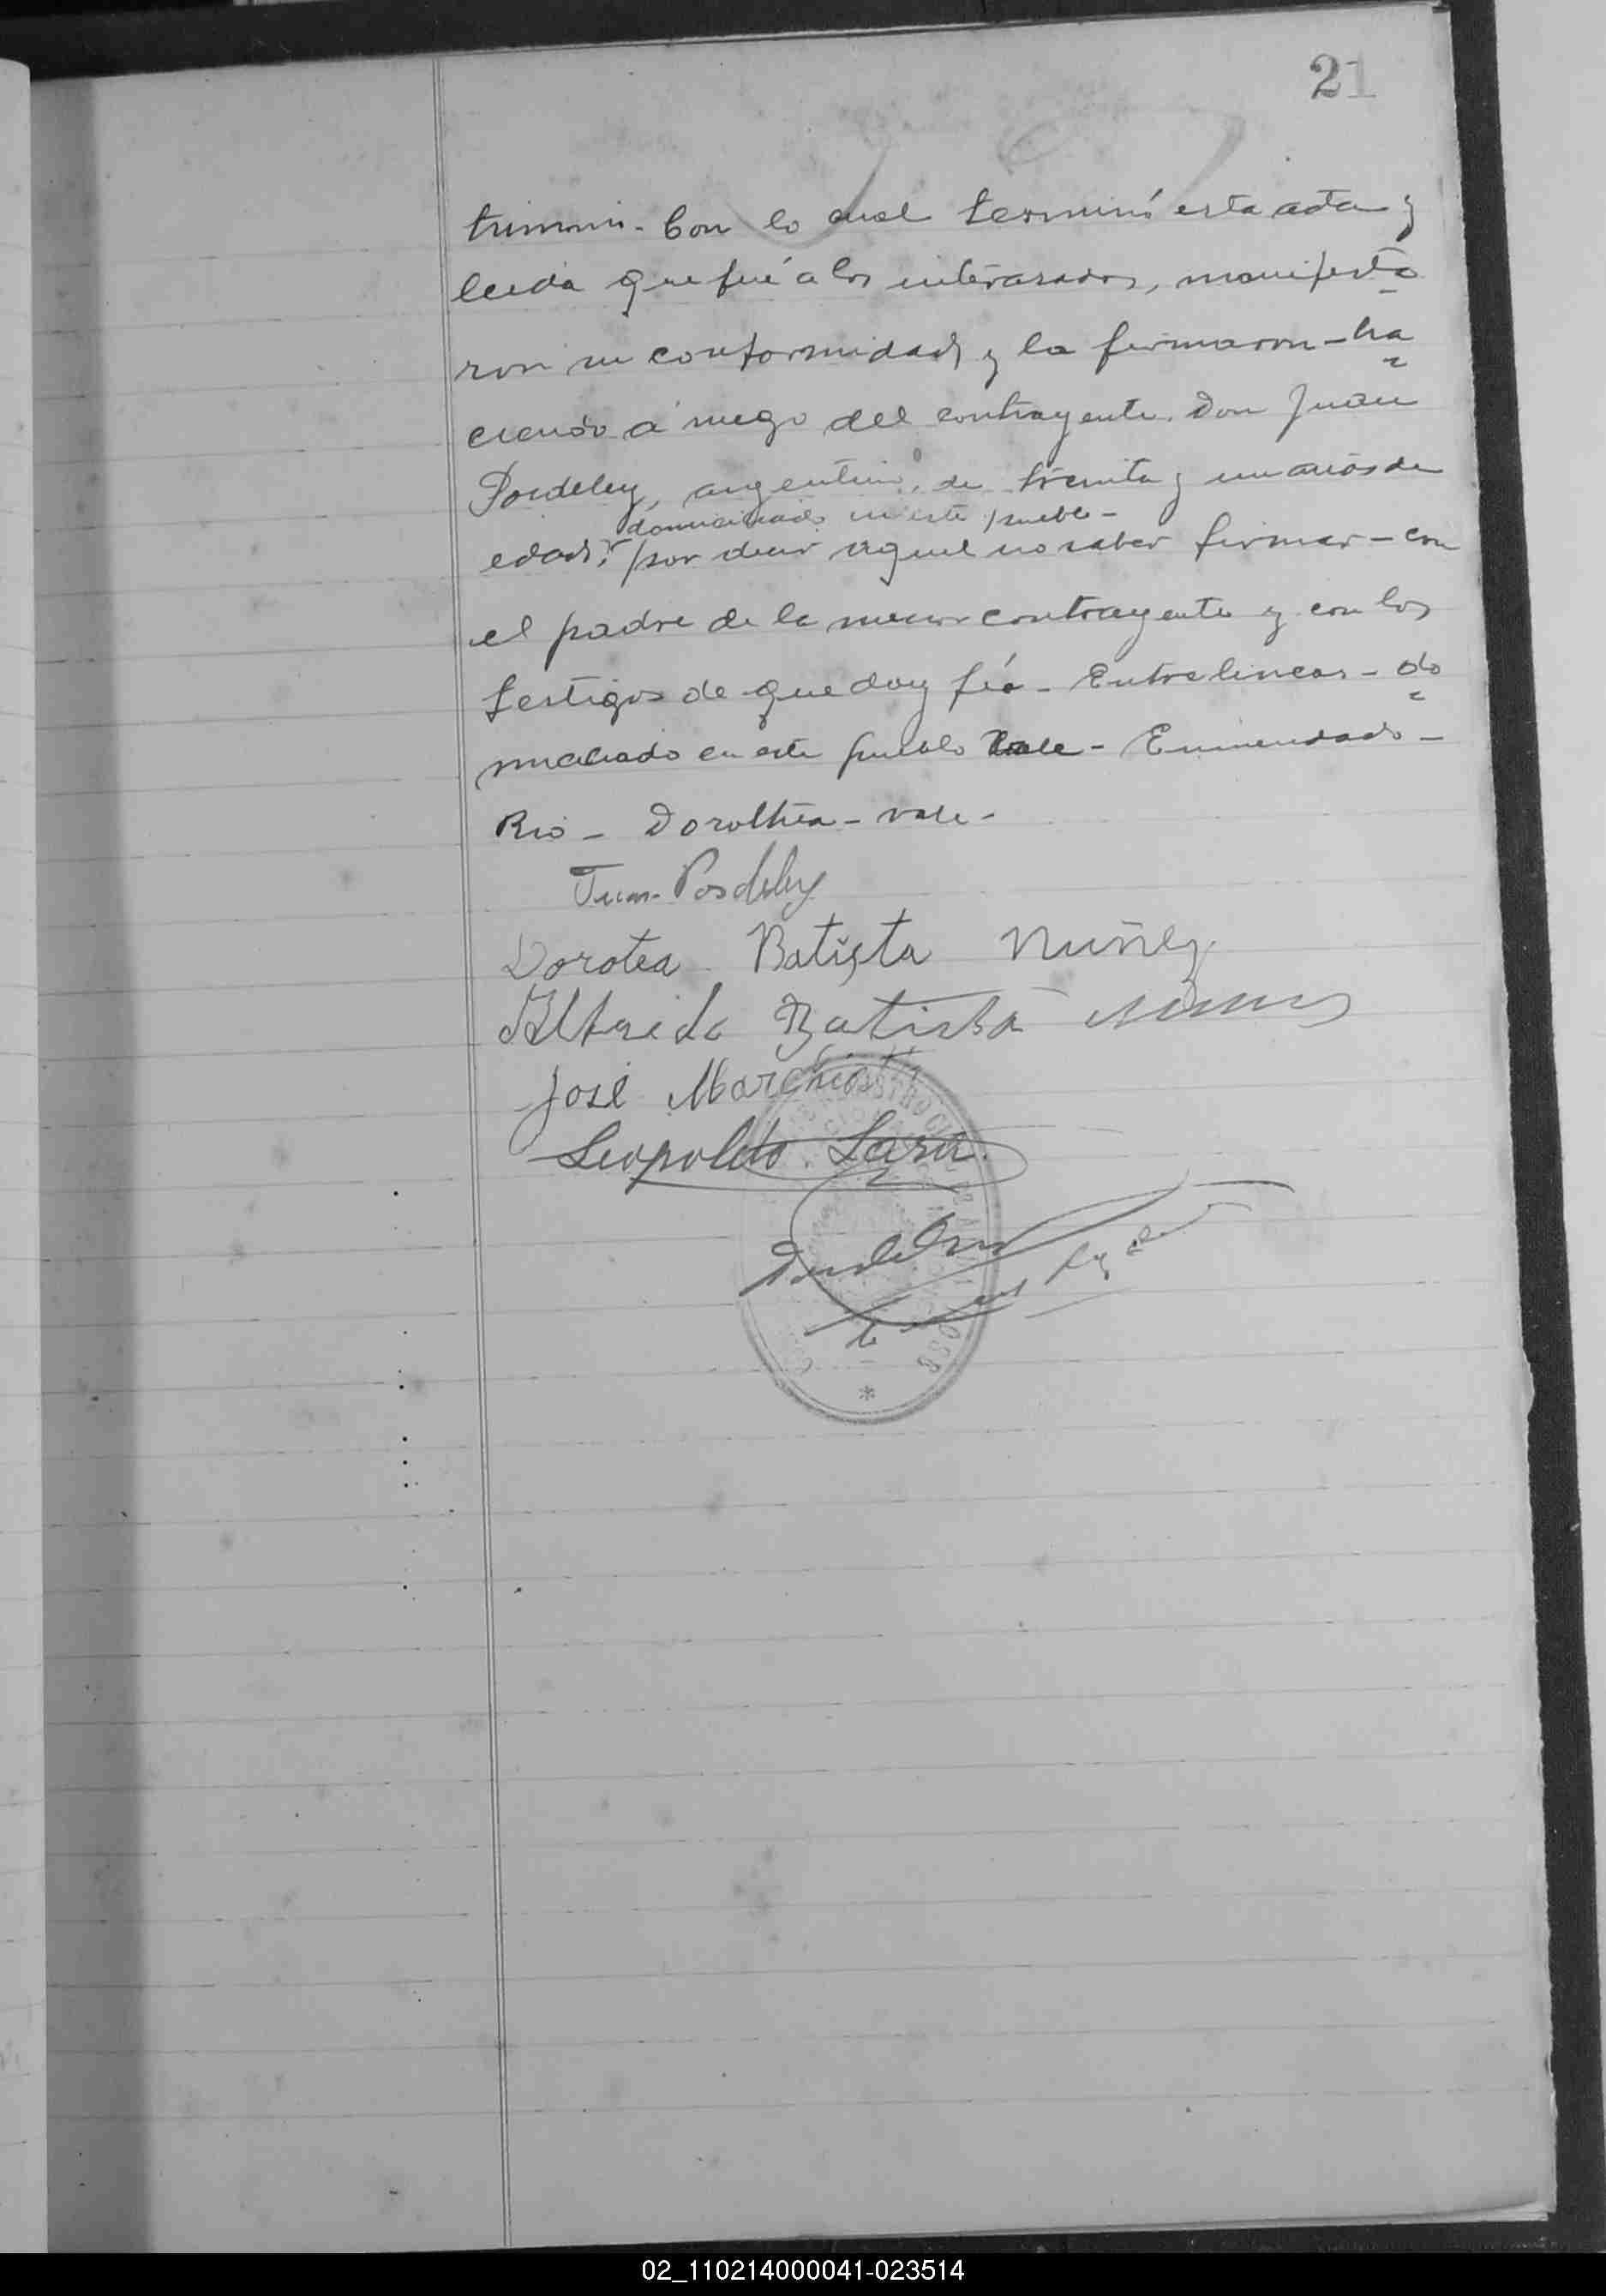 21
trimonio. Con lo cual terminó esta acta y
leida que fué a los interasados, manifesta
ron su conformidad y la firmaron - ha
ciendo á ruego del contrayente, Don Juan
Posdeley, argentino, de treinta y un años de
domiciliado en este pueblo -
edad, por decir aquel no saber firmar - con
el padre de la menor contrayente y con los
testigos de que doy fé - Entre lineas - do
miciliado en este pueblo vale - Enmendado -
Rio - Dorothea - vale -
Juan Posdeley
Dorotea Batista Nuñez
Alfredo Batista Nunes
José Marchiori
Leopoldo Lara
REGISTRO CIVIL DE
*
02_110214000041-023514